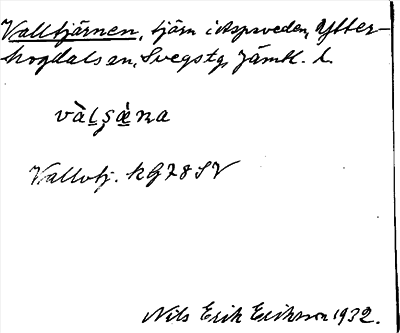 Valltjärnen, tjärn i Aspsveden, Ytter-
hogdals sn, Svegs tg, Jämtl. l.
Valltj. kG78SV
Nils Erik Eriksson 1932.